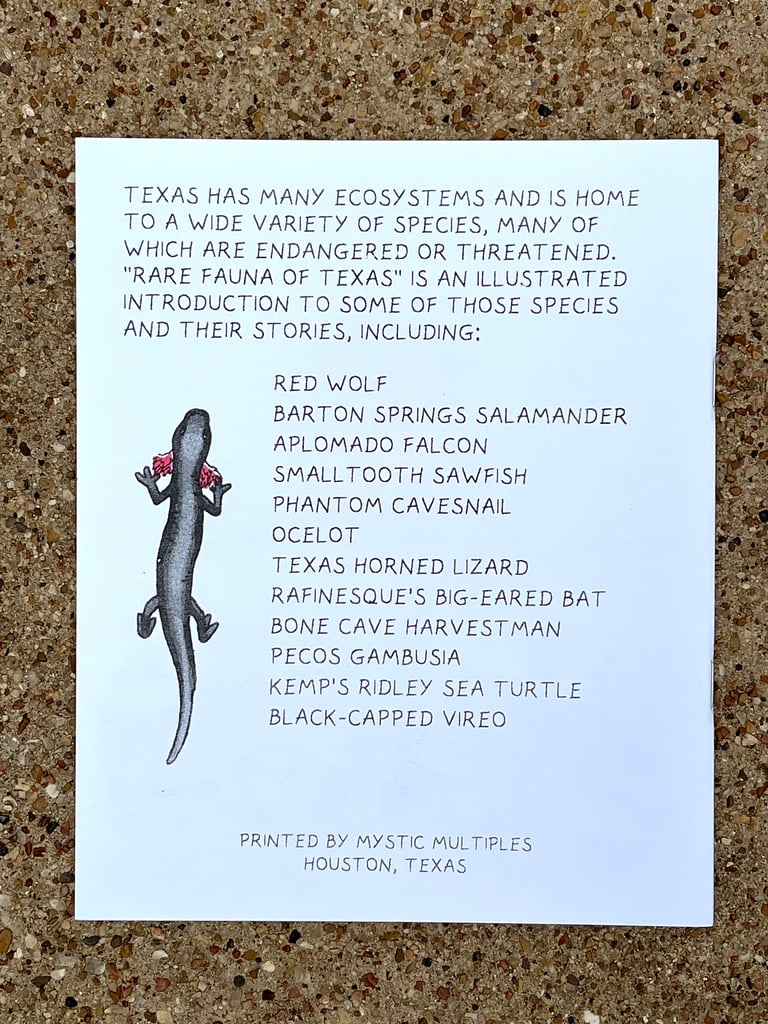 TEXAS HAS MANY ECOSYSTEMS AND IS HOME
TO A WIDE VARIETY OF SPECIES, MANY OF
WHICH ARE ENDANGERED OR THREATENED.
"RARE FAUNA OF TEXAS" IS AN ILLUSTRATED
INTRODUCTION TO SOME OF THOSE SPECIES
AND THEIR STORIES, INCLUDING:
RED WOLF
BARTON SPRINGS SALAMANDER
APLOMADO FALCON
SMALLTOOTH SAWFISH
PHANTOM CAVESNAIL
OCELOT
TEXAS HORNED LIZARD
RAFINESQUE'S BIG-EARED BAT
BONE CAVE HARVESTMAN
PECOS GAMBUSIA
KEMP'S RIDLEY SEA TURTLE
BLACK-CAPPED VIREO
PRINTED BY MYSTIC MULTIPLES
HOUSTON, TEXAS